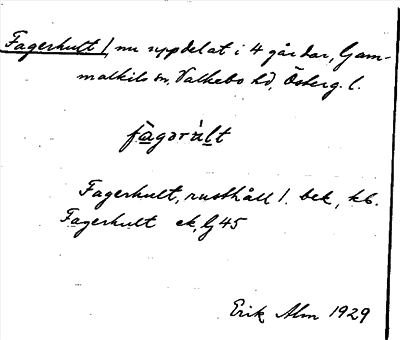 Fagerhult 1, nu uppdelat i 4 gårdar, Gam-
malkils sn, Valkebo hd, Österg. l.
fàgərúlt
Fagerhult, rusthåll 1. bek, kb.
Fagerhult ek, Lj 45
Erik Alm 1929